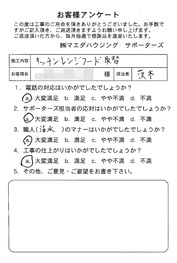 お客様アンケート
この度は工事のご用命を頂きありがとうございました。お手数で
すがご記入頂き、ご返送頂きますようお願い申し上げます。
ご返送頂いた方から、毎月抽選で感謝品を進呈いたします。
㈱マエダハウジング サポーターズ
施工内容 キッチンレンジフード取替
お客様名 様 担当者 茨木
1. 電話の対応はいかがでしたでしょうか?
a. 大変満足 b. 満足 c. やや不満 d. 不満
2. サポーターズ担当者の応対はいかがでしたでしょうか?
a. 大変満足 b. 満足 c. やや不満 d. 不満
3. 職人(清水)のマナーはいかがでしたでしょうか?
a. 大変満足 b. 満足 c. やや不満 d. 不満
4. 工事の仕上がりはいかがでしたでしょうか?
a. 大変満足 b. 満足 c. やや不満 d. 不満
その他、ご意見・ご要望をお書き下さい。